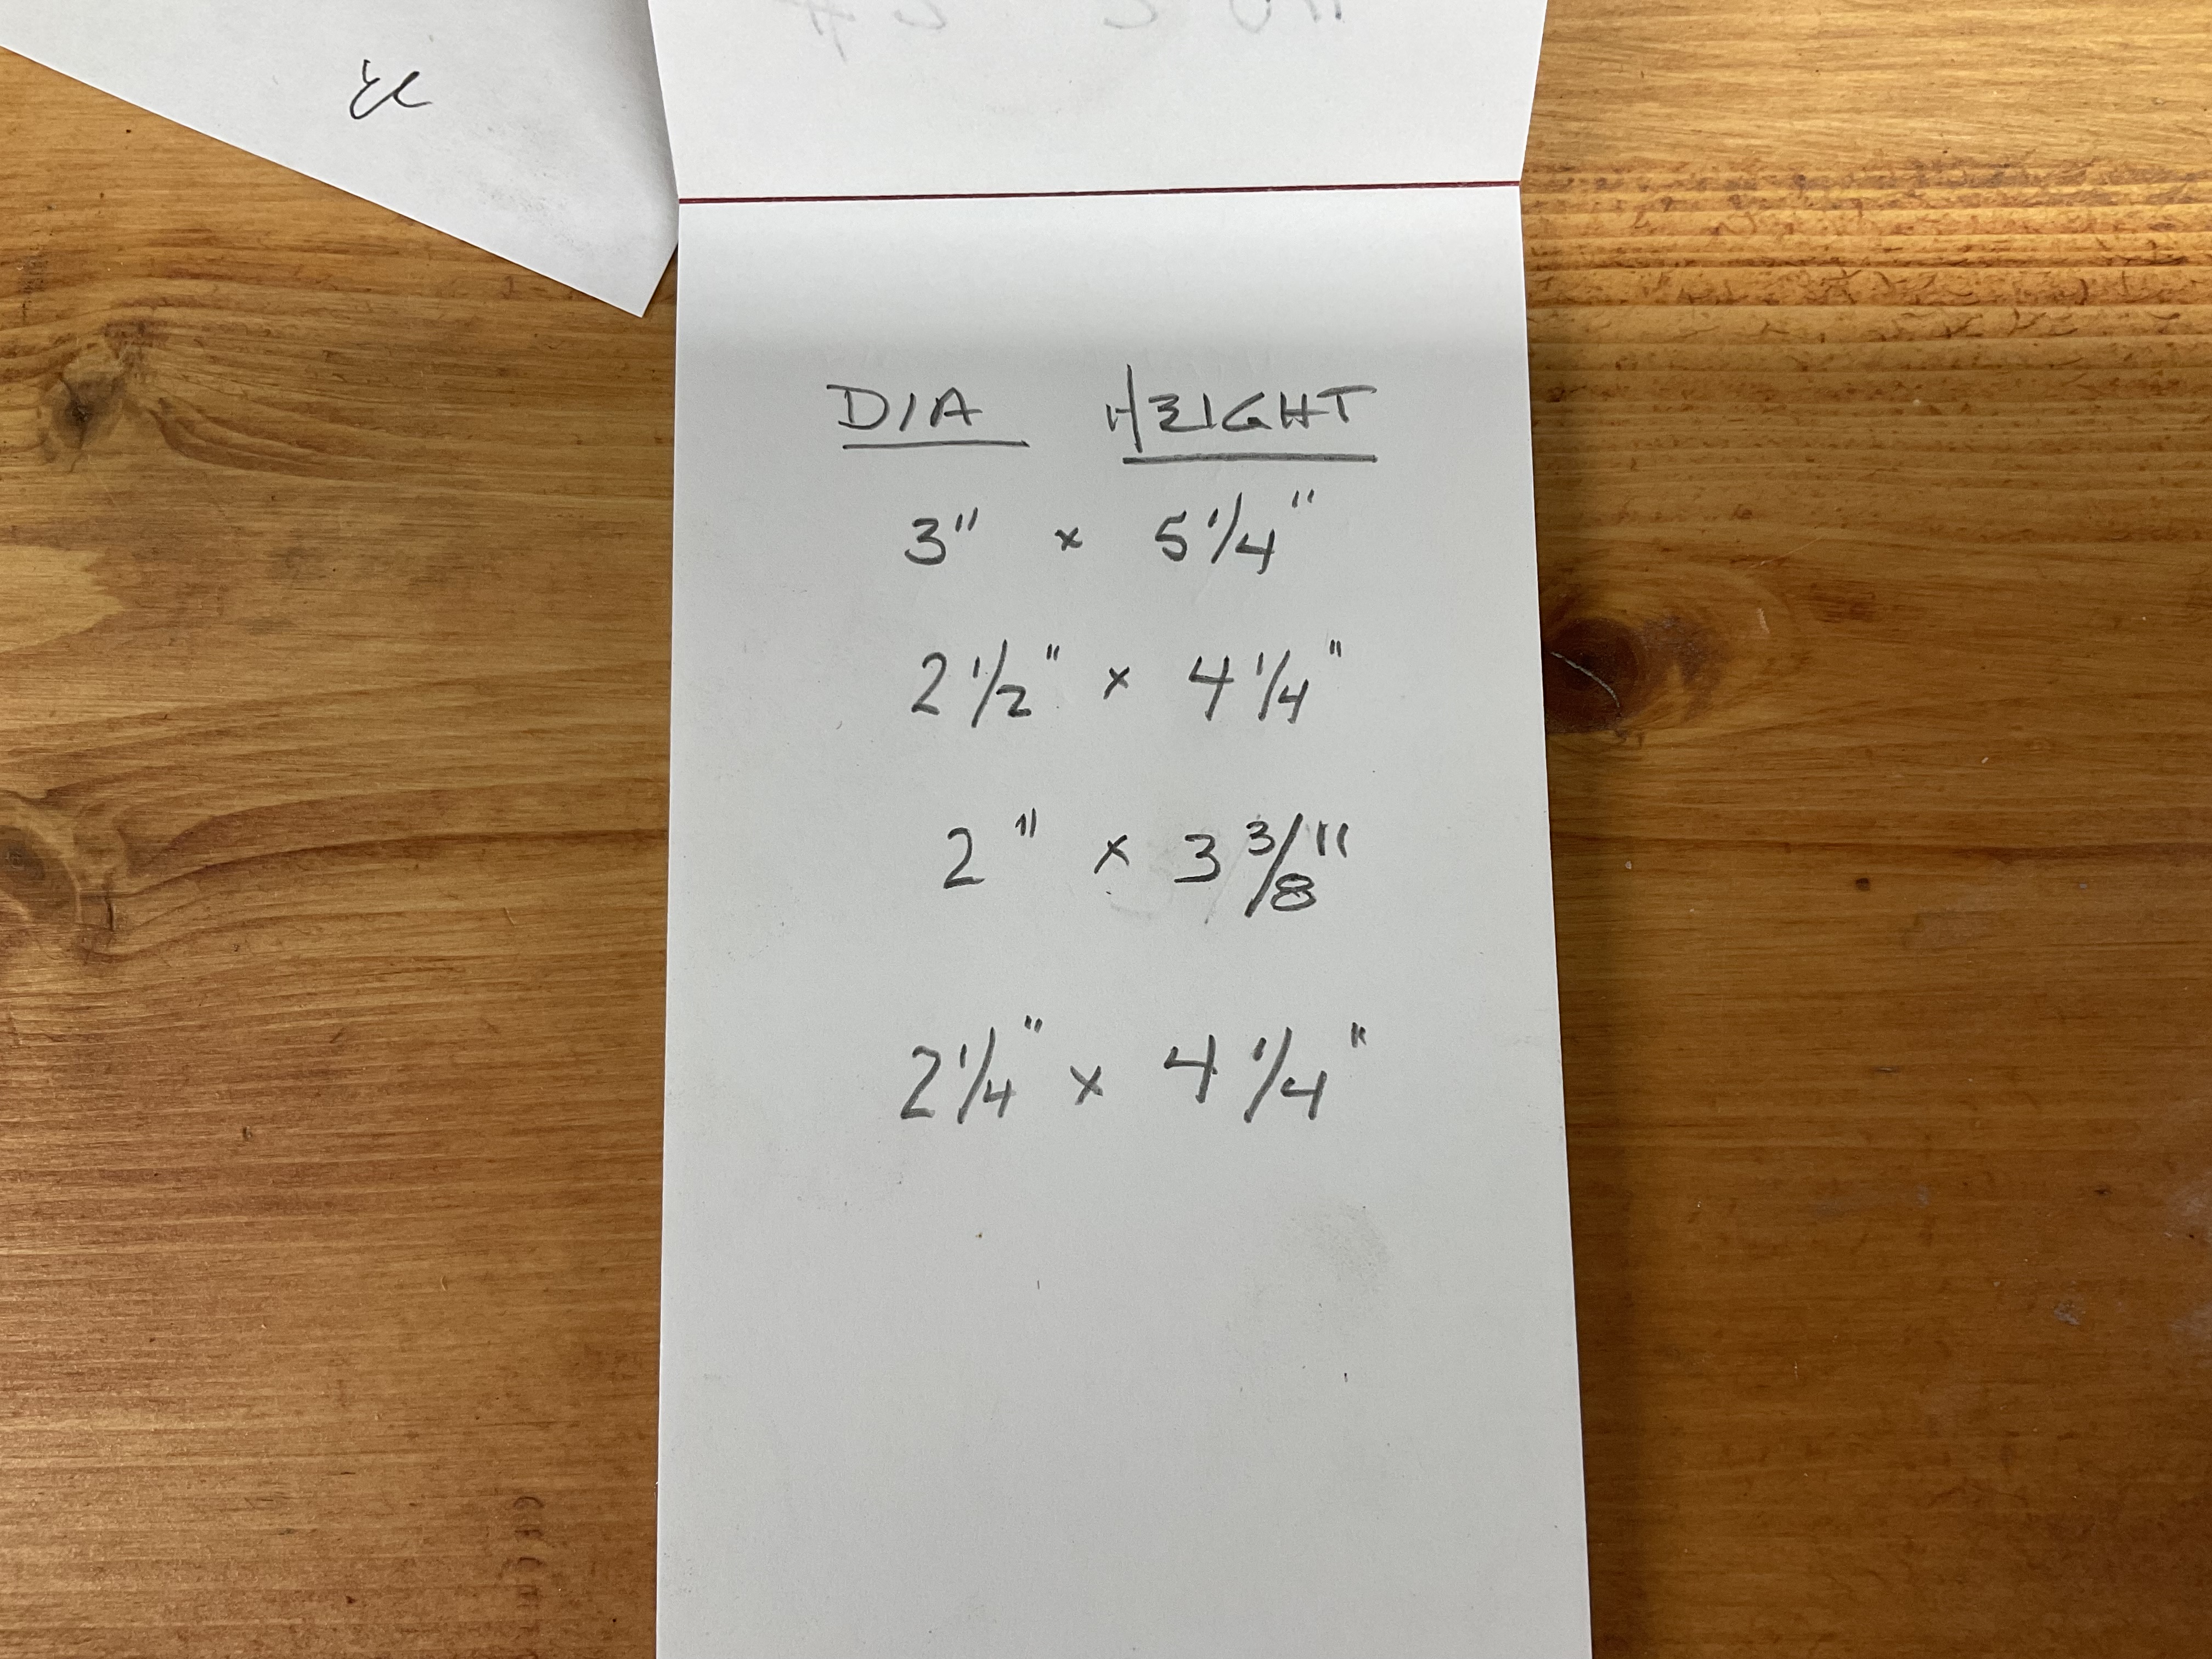 DIA HEIGHT
3" x 5 1/4"
2 1/2" x 4 1/4"
2" x 3 3/8"
2 1/4" x 4 1/4"